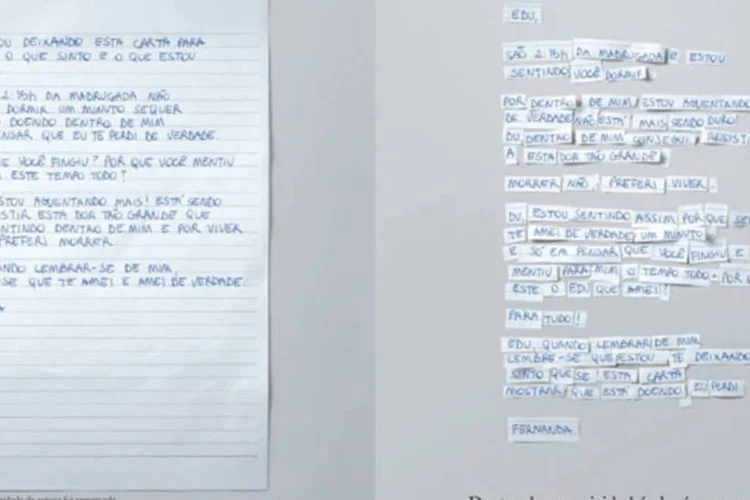 OU DEIXANDO ESTA CARTA PARA
O QUE SINTO E O QUE ESTOU
2:15h DA MADRUGADA NÃO
DORMIR UM MINUTO SEQUER
DOENDO DENTRO DE MIM
NSAR QUE EU TE PERDI DE VERDADE.
UE VOCÊ FINGIU? POR QUE VOCÊ MENTIU
ESTE TEMPO TODO?
STOU AGUENTANDO MAIS! ESTÁ SENDO
ISTIR ESTA DOR TÃO GRANDE QUE
NTINDO DENTRO DE MIM E POR VIVER
PREFERI MORRER.
ANDO LEMBRAR-SE DE MIM,
-SE QUE TE AMEI E AMEI DE VERDADE.
EDU,
SÃO 2:15h DA MADRUGADA E ESTOU
SENTINDO VOCÊ DORMIR.
POR DENTRO DE MIM ESTOU AGUENTANDO
DE VERDADE NÃO ESTÁ MAIS SENDO DURO
DU, DENTRO DE MIM CONSEGUI RESISTI
A ESTA DOR TÃO GRANDE?
MORRER NÃO, PREFERI VIVER.
DU, ESTOU SENTINDO ASSIM, POR QUE SE
TE AMEI DE VERDADE UM MINUTO
E SÓ EM PENSAR QUE VOCÊ FINGIU E
MENTIU PARA MIM O TEMPO TODO. POR
ESTE O EDU QUE AMEI?
PARA TUDO!
EDU, QUANDO LEMBRAR DE MIM,
LEMBRE-SE QUE ESTOU TE DEIXANDO
SINTO QUE SE ESTA CARTA
MOSTRAR QUE ESTÁ DOENDO, EU PERDI
FERNANDA